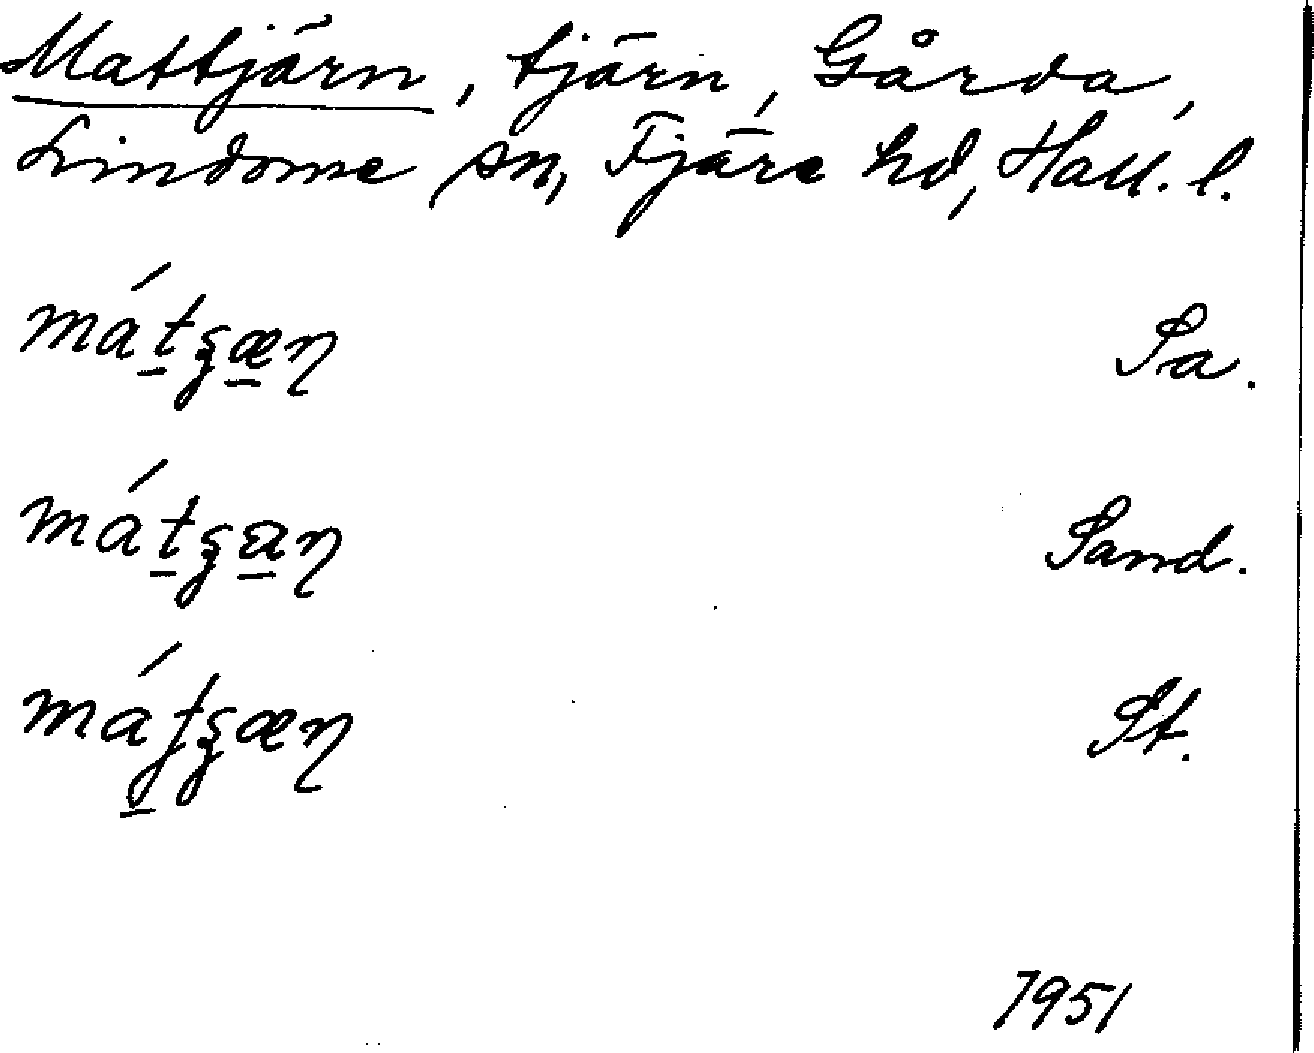 Mattjärn, tjärn, Gårda,
Lindome sn, Fjäre hd, Hall. l.
Sa.
Sand.
St.
1951